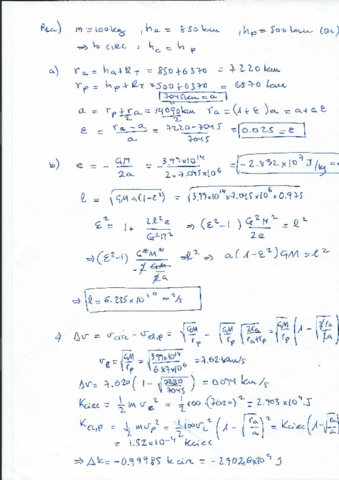 Rea) m = 100kg , ha = 850km , hp = 500km (OL)
⇒ to circ : hc = hp
a) ra = ha + RT = 850 + 6370 = 7220 km
rp = hp + RT = 500 + 6370 = 6870 km
a = (rp + ra)/2 = 14090km/2 7045 km = a ra = (1+ε)a = a + aε
ε = (ra - a)/a = (7220 - 7045)/7045 = 0.025 = ε
b) e = - GM/2a = - 3.99×10^14/(2·7.045×10^6) = -2.832×10^7 J/kg
l = √(GMa(1-ε²)) = √(3.99×10^14 · 7.045×10^6 · 0.975
ε² = 1 + 2l²e/G²M² ⇒ (ε²-1) G²M²/2e = l²
⇒ (ε²-1) G²M²/(-2 GM/2a) = l² ⇒ a(1-ε²)GM = l²
⇒ l = 5.235×10^10 m²/s
c) Δv = vcirc - velip = √(GM/rp) - √(GM/rp) √(2ra/(ra+rp)) = √(GM/rp) (1 - √(2ra/2a))
vc = √(GM/rp) = √(3.99×10^14/6.87×10^6) = 7.62 km/s
Δv = 7.620 (1 - √(7220/7045)) = 0.094 km/s
Kcirc = 1/2 m vc² = 1/2 100 (7620)² = 2.903×10^9 J
Kelip = 1/2 m vp² = 1/2 100 vc² (1 - √(ra/a))² = Kcirc (1 - √(ra/a
= 1.52×10^-4 Kcirc
⇒ Δk = -0.99985 kcirc = -2.9026×10^9 J